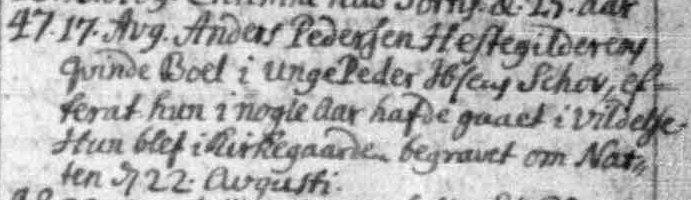 Aar
47. 17. Avg. Anders Pedersen Hestegilderens
Qvinde Boel i Unge Peder Ibsens Schov, ef-
terat hun i nogle Aar hafde gaaet i Vildelse.
Hun blef i Kirkegaarden begravet om Nat-
ten d. 22. Augusti.